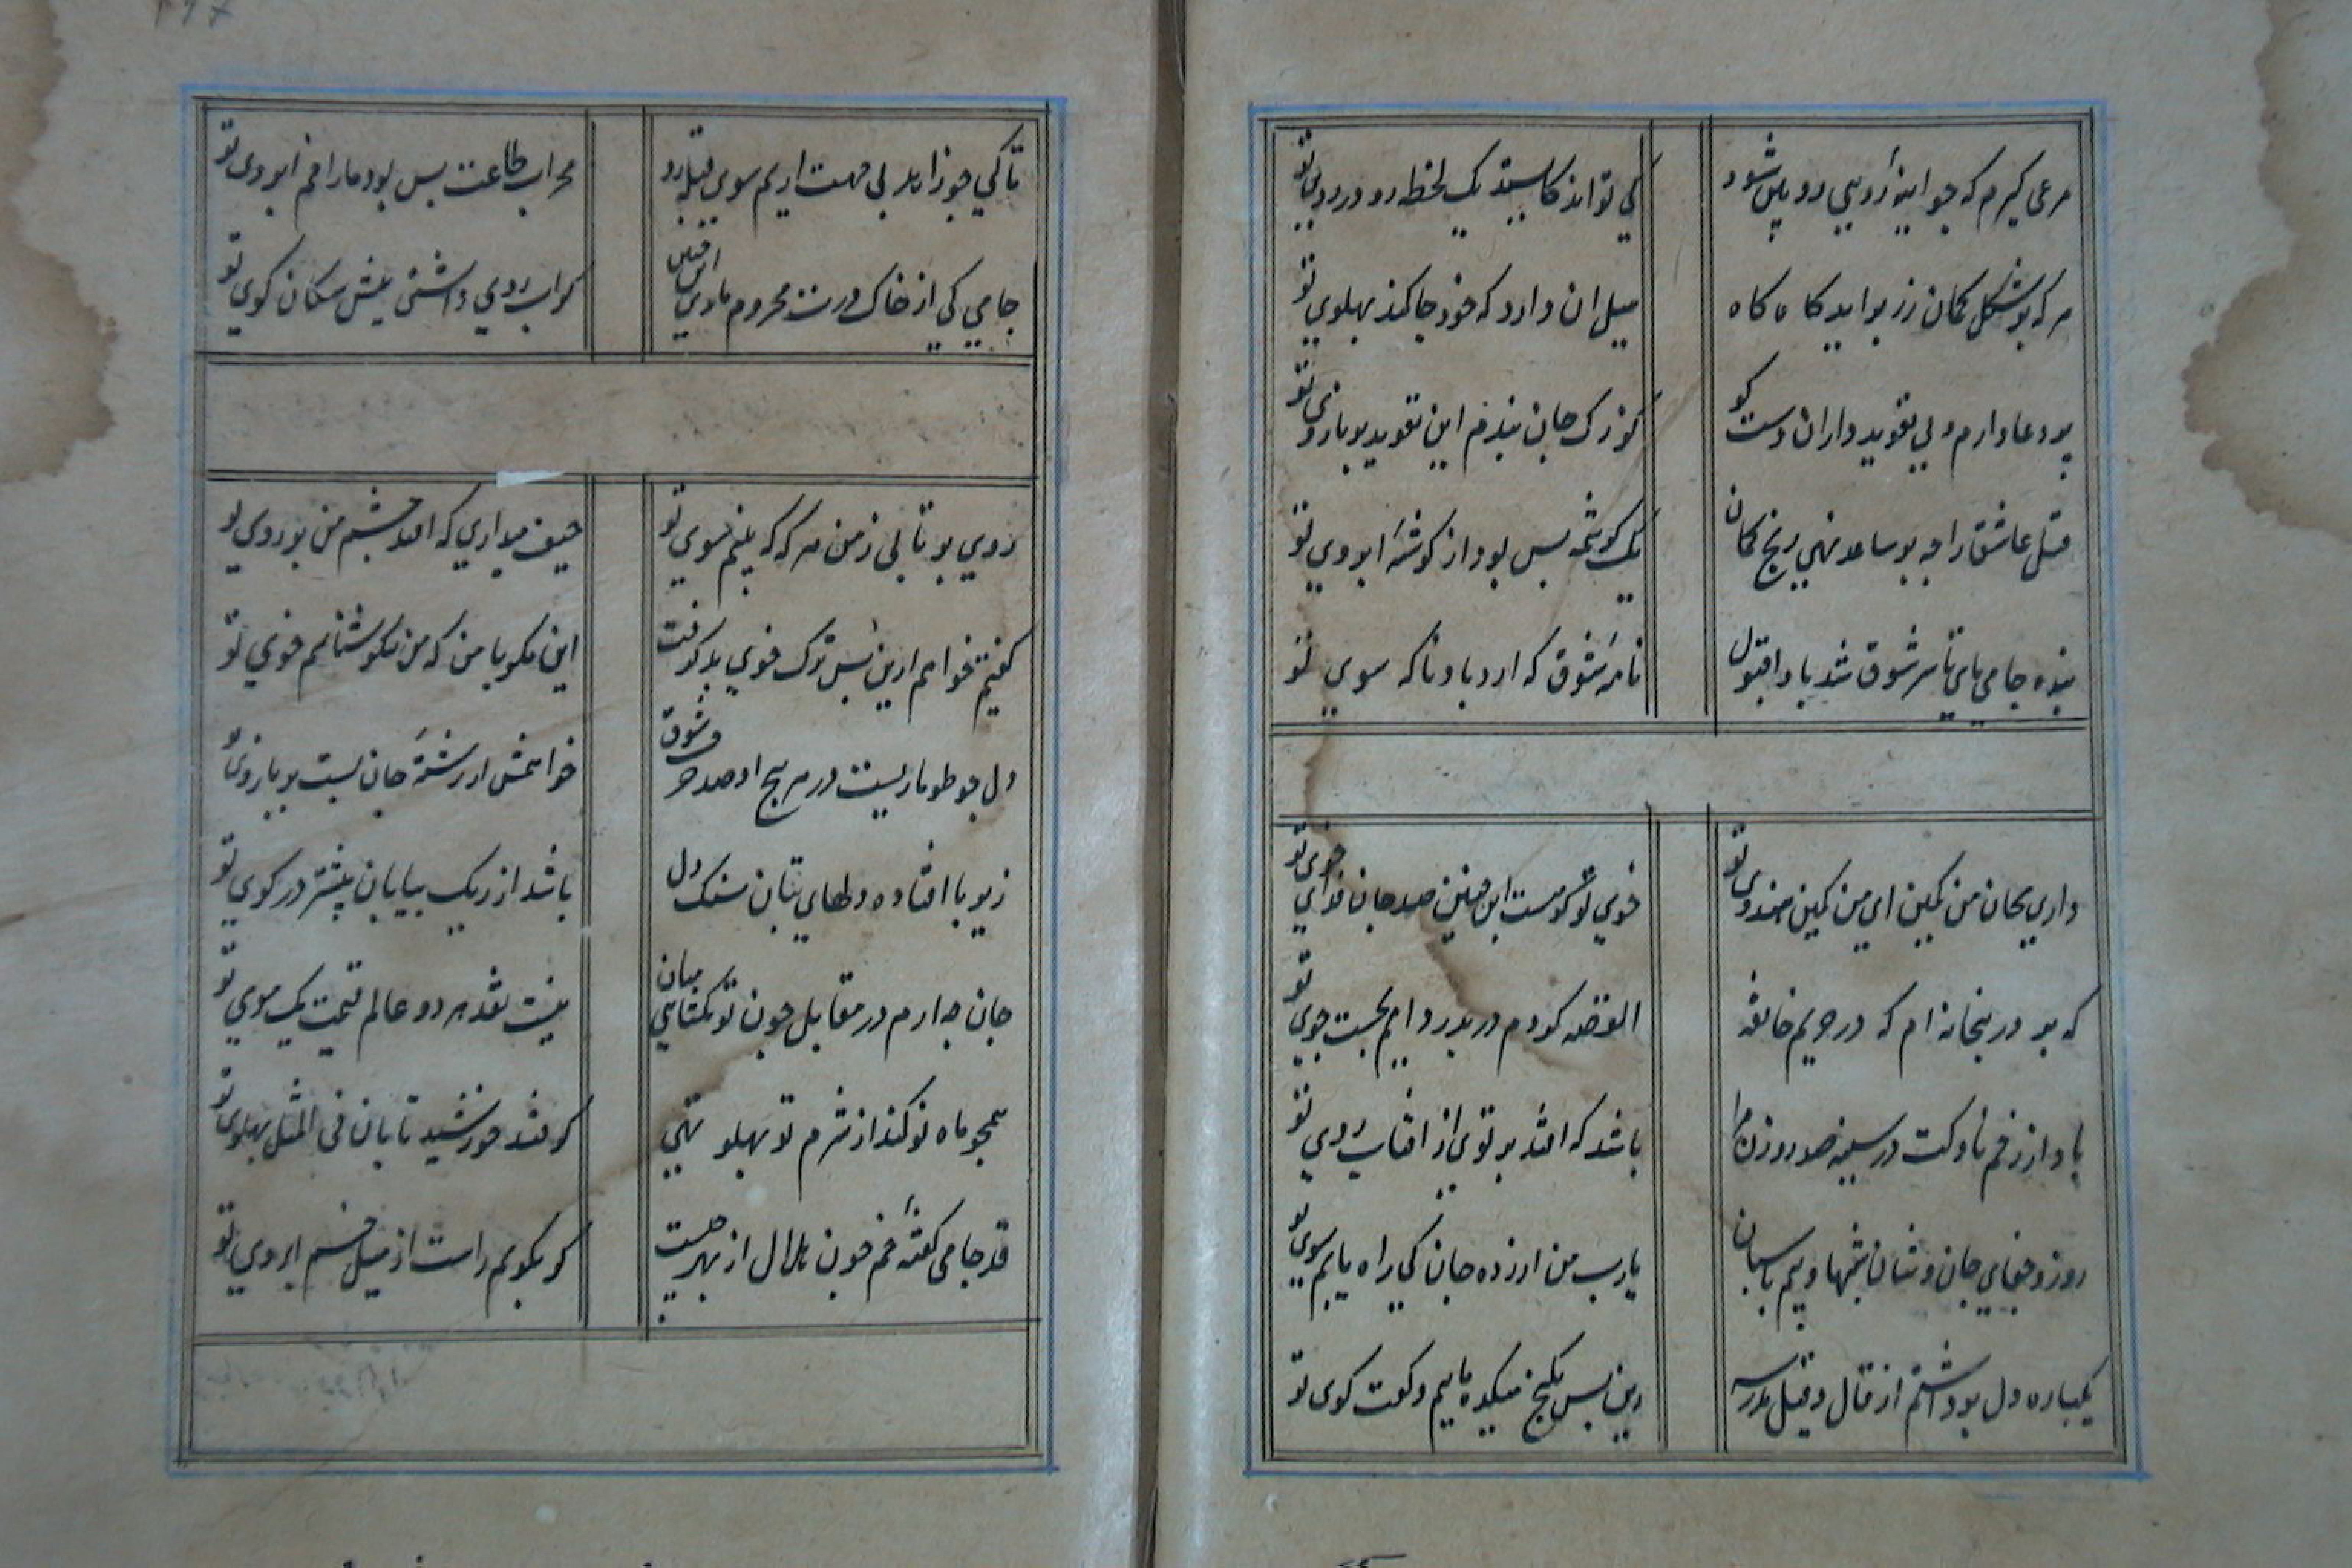 مدعی گیرم که چو آینه رویین رو پس شود کی تواند کایستد یک لحظه رو در روی تو
هر که بر شکل کمان زر براید کاه کاه میل ان دارد که خود جا کند پهلوی تو
پر دعا دارم ولی تعوید داران دست کو کز رک جان بندم این تعوید بر بازوی تو
قتل عاشق را چه بر ساعد نهی رنج کمان یک کرشمه بس بود از کوشهٔ ابروی تو
بنده جامی پای تا سر شوق شد بادا قبول نامهٔ شوق که ارد باد ناکه سوی تو
داری بجان من کمین ای من کمین هندوی تو خوی تو کر هست این چنین صد جان فدای خوی تو
که بر در بتخانه ام که در حریم خانقه القصه کردم در بدر دایم بجست جوی تو
باد از زخم ناوکت در سینه صد روزن مرا باشد که افتد پرتوی از افتاب روی تو
روز و جفای جان و شان شبها و بیم پاسبان یارب من ازرده جان کی راه یابم سوی تو
یکباره دل برداشتم از قال و قیل مدرسه زین پس بکنج میکده ماییم و کفت کوی تو
تا کی چو زاهد بی جهت اریم سوی قبله رو محراب طاعت بس بود ما را خم ابروی تو
جامی کی از خاک درت محروم ماندی این چنین کراب روی داشتی پیش سکان کوی تو
روی بر تابی ز من هر که که بینم سوی تو حیف میداری که افتد چشم من بر روی تو
کفتیم خواهم ازین پس ترک خوی بد کرفت این مکو با من که من نکو شناسم خوی تو
دل چو طوماریست در هر پیچ او صد حرف شوق خواهمش از رشتهٔ جان بست بر بازوی تو
زیر پا افتاده دلهای بتان سنک دل باشد از ریک بیابان بیشتر در کوی تو
جان چه ارم در مقابل چون تو بکشایی میان نیست نقد هر دو عالم قیمت یک موی تو
همچو ماه نو کند از شرم تو پهلو تهی کر فتد خورشید تابان فی المثل پهلوی تو
قد جامی کفتهٔ خم چون هلال از بهر چیست کر بکویم راست از میل خم ابروی تو